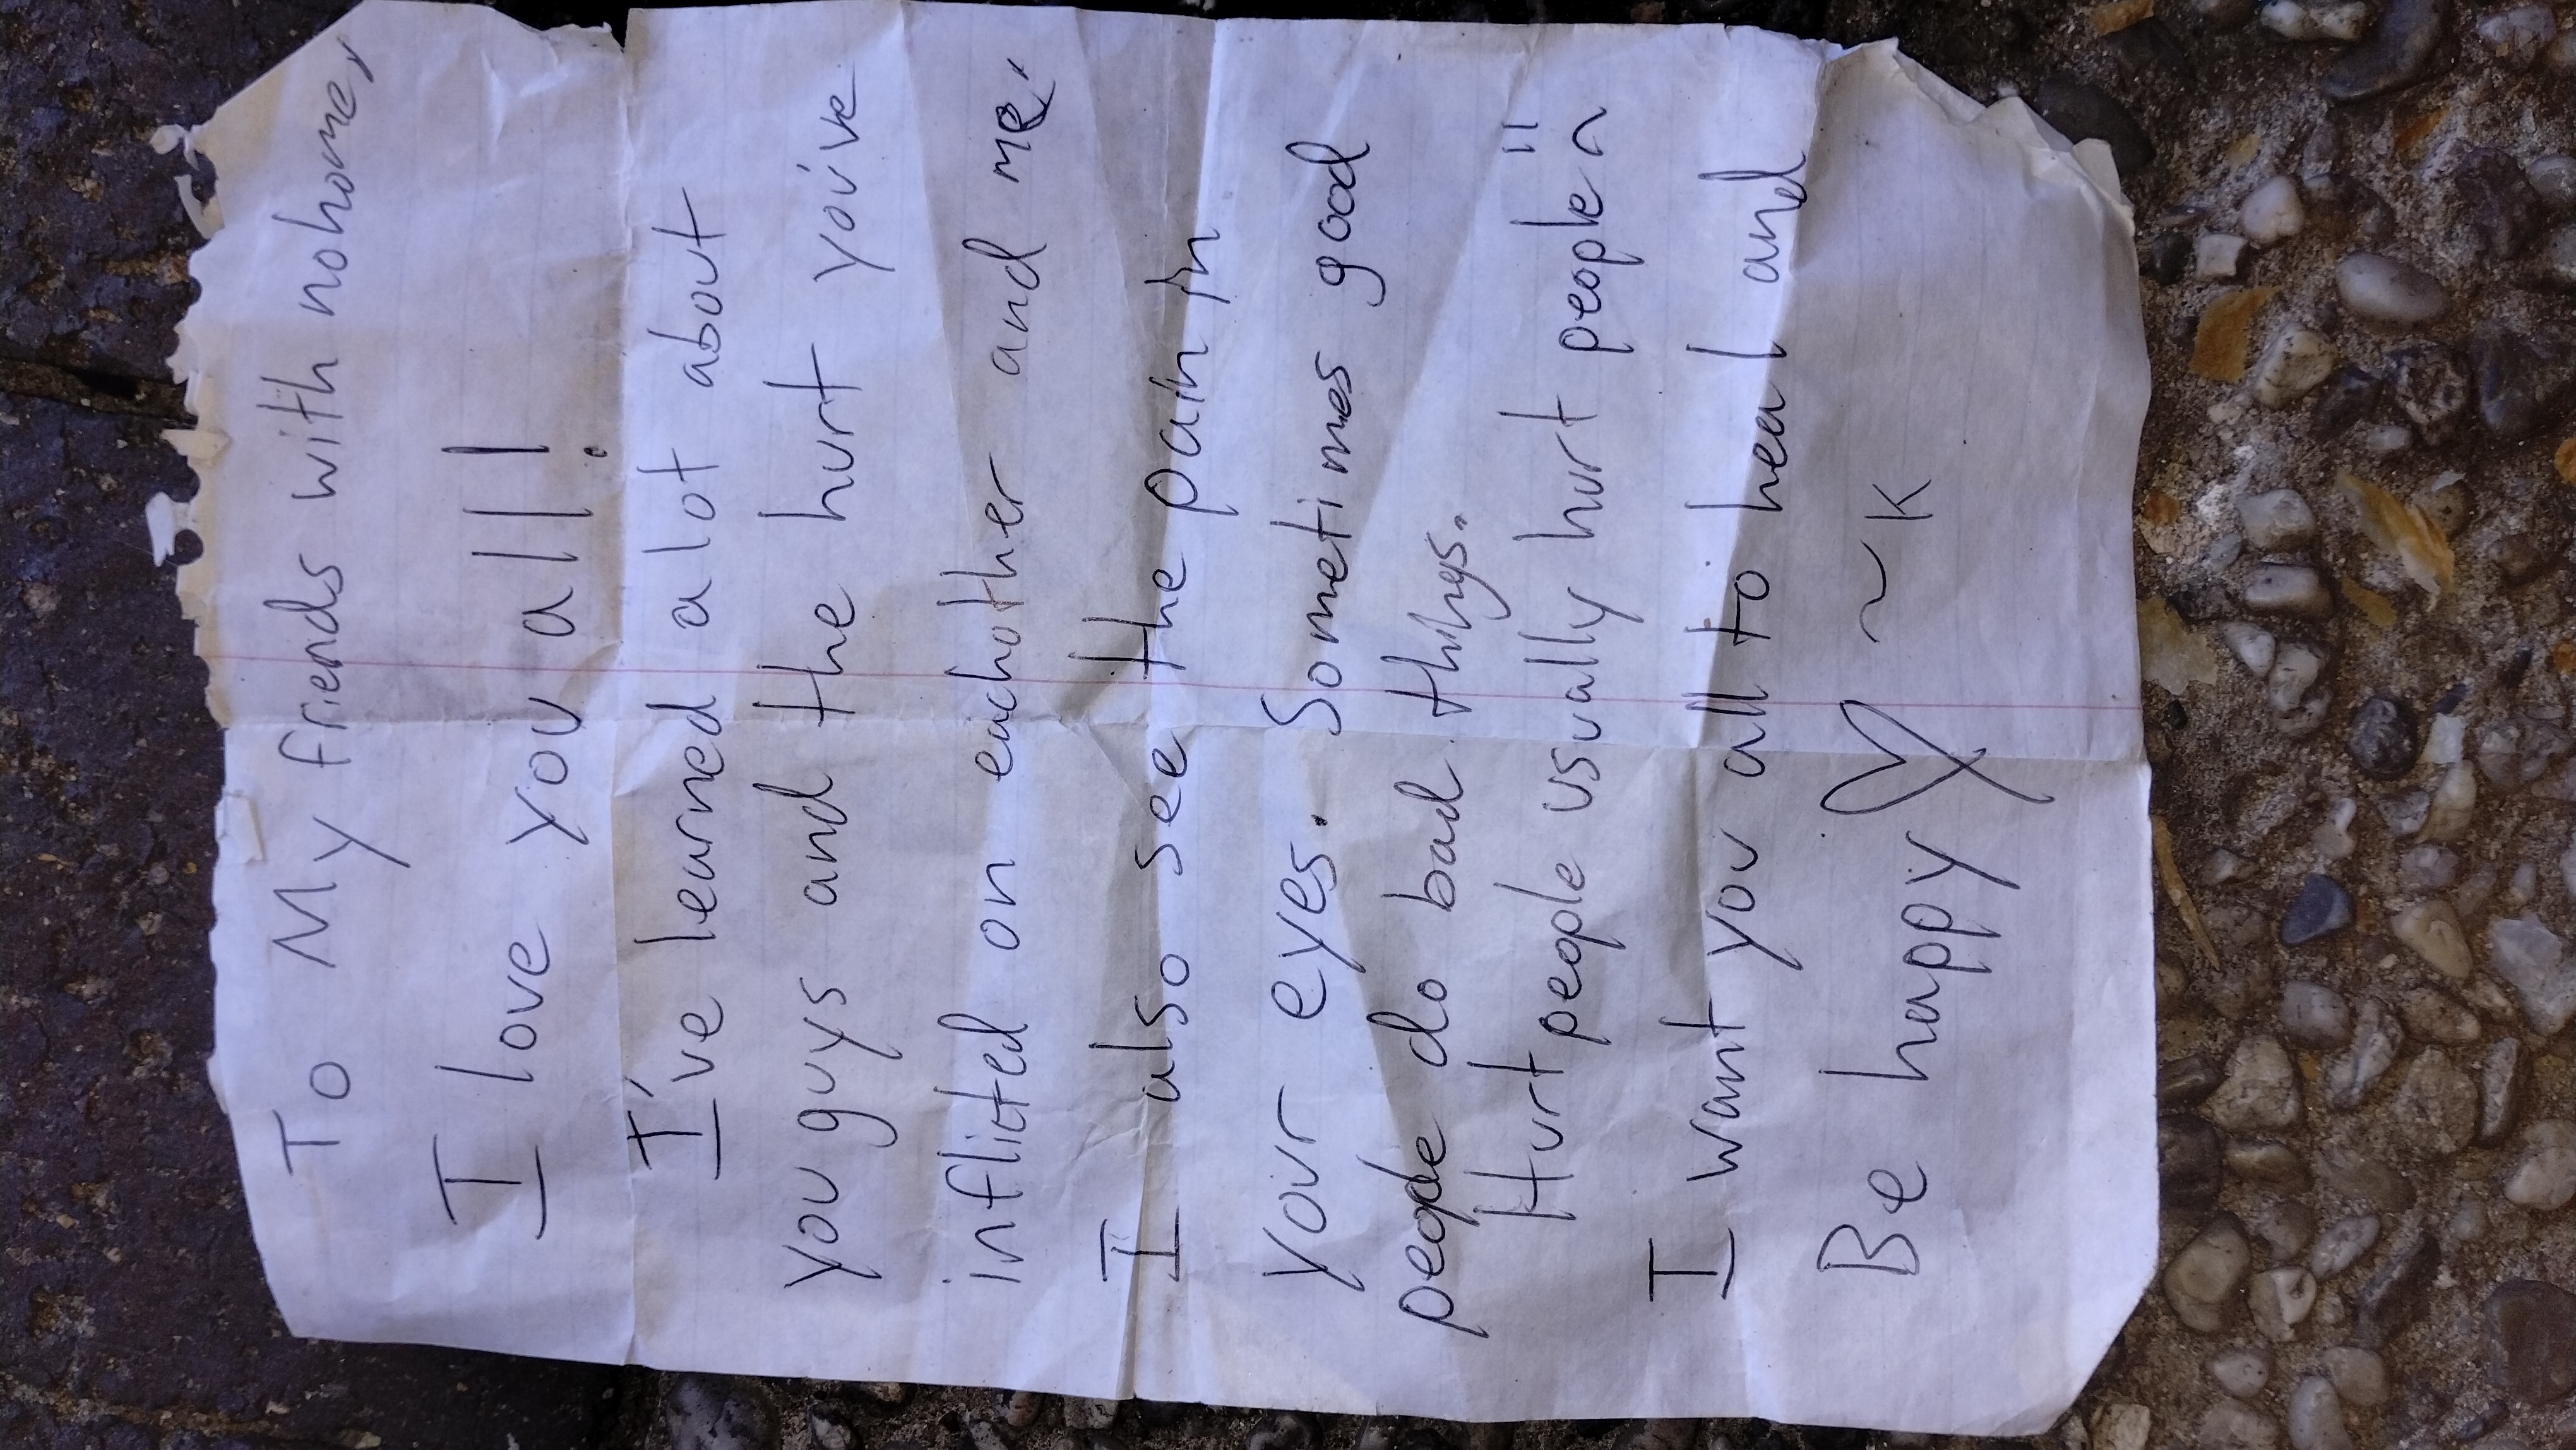 To My friends with nohome,
I love you all!
I've learned a lot about
you guys and the hurt you've
inflicted on eachother and me.
I also see the pain in
your eyes. Sometimes good
people do bad things.
Hurt people usually hurt people "
I want you all to heal and
Be happy ♡ ~K